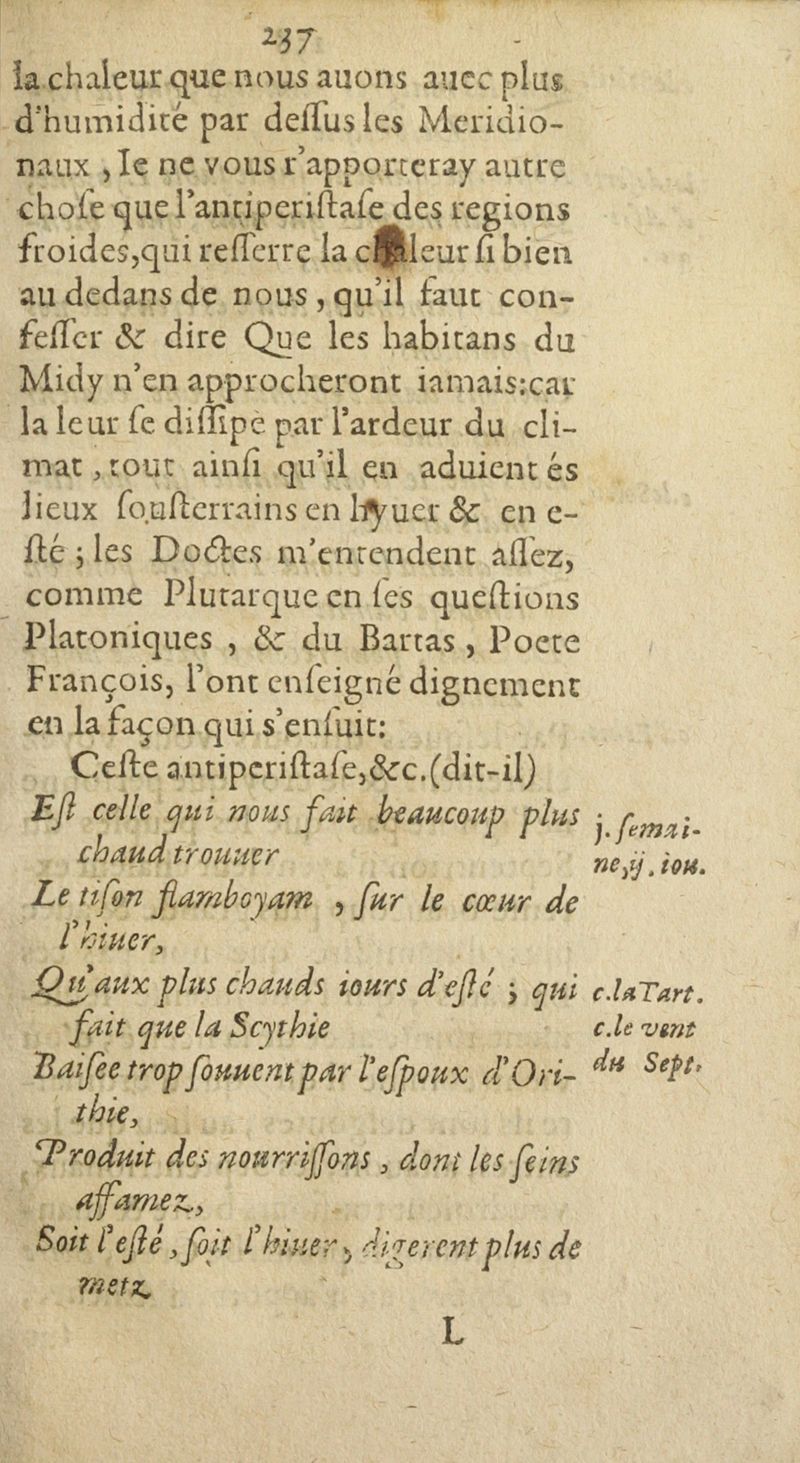 237
la chaleur que nous auons auec plus
d'humidité par deſſus les Meridio-
naux , Ie ne vous r'apporteray autre
choſe que l'antiperiſtaſe des regions
froides,qui reſſerre la chaleur ſi bien
au dedans de nous , qu'il faut con-
feſſer & dire Que les habitans du
Midy n'en approcheront iamais:car
la leur ſe diſſipe par l'ardeur du cli-
mat , tout ainſi qu'il en aduient és
lieux ſouſterrains en hyuer & en e-
ſté ; les Doctes m'entendent aſſez,
comme Plutarque en ſes queſtions
Platoniques , & du Bartas , Poete
François, l'ont enſeigné dignement
en la façon qui s'enſuit:
Ceſte antiperiſtaſe,&c.(dit-il)
Eſt celle qui nous fait beaucoup plus
chaud trouuer
Le tiſon flamboyam , ſur le cœur de
l'hiuer,
Qu'aux plus chauds iours d'eſté ; qui
fait que la Scythie
Baiſee trop ſouuent par l'eſpoux d'Ori-
thie,
Produit des nourriſſons , dont les ſeins
affamez,
Soit l'eſté , ſoit l'hiuer, digerent plus de
metz
j. ſemai-
ne,ij. iou.
c.la Tart.
c.le vent
du Sept.
L